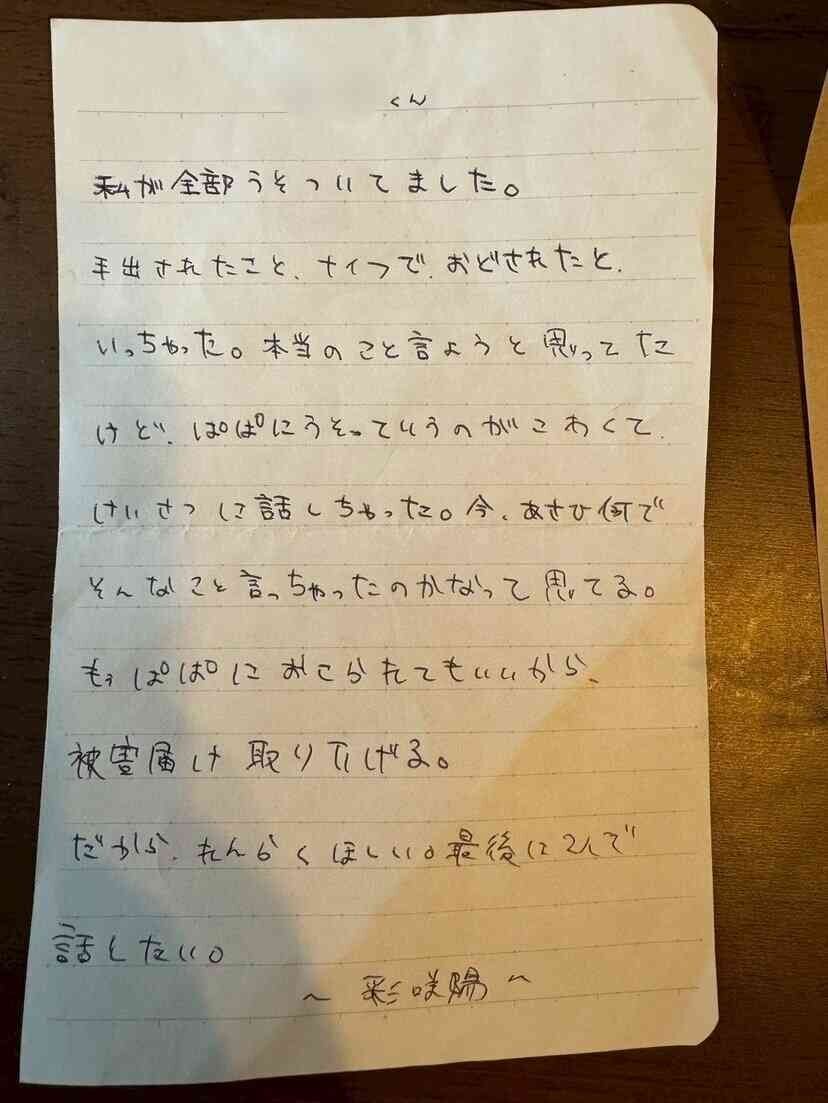 くん
私が全部うそついてました。
手出されたこと、ナイフで、おどされたと、
いっちゃった。本当のこと言ようと思ってた
けど、ぱぱにうそっていうのがこわくて、
けいさつに話しちゃった。今、あさひ何で
そんなこと言っちゃったのかなって思てる。
もぅぱぱにおこられてもいいから、
被害届け取り下げる。
だから、れんらくほしい。最後に2人で
話したい。
～ 彩咲陽 ～